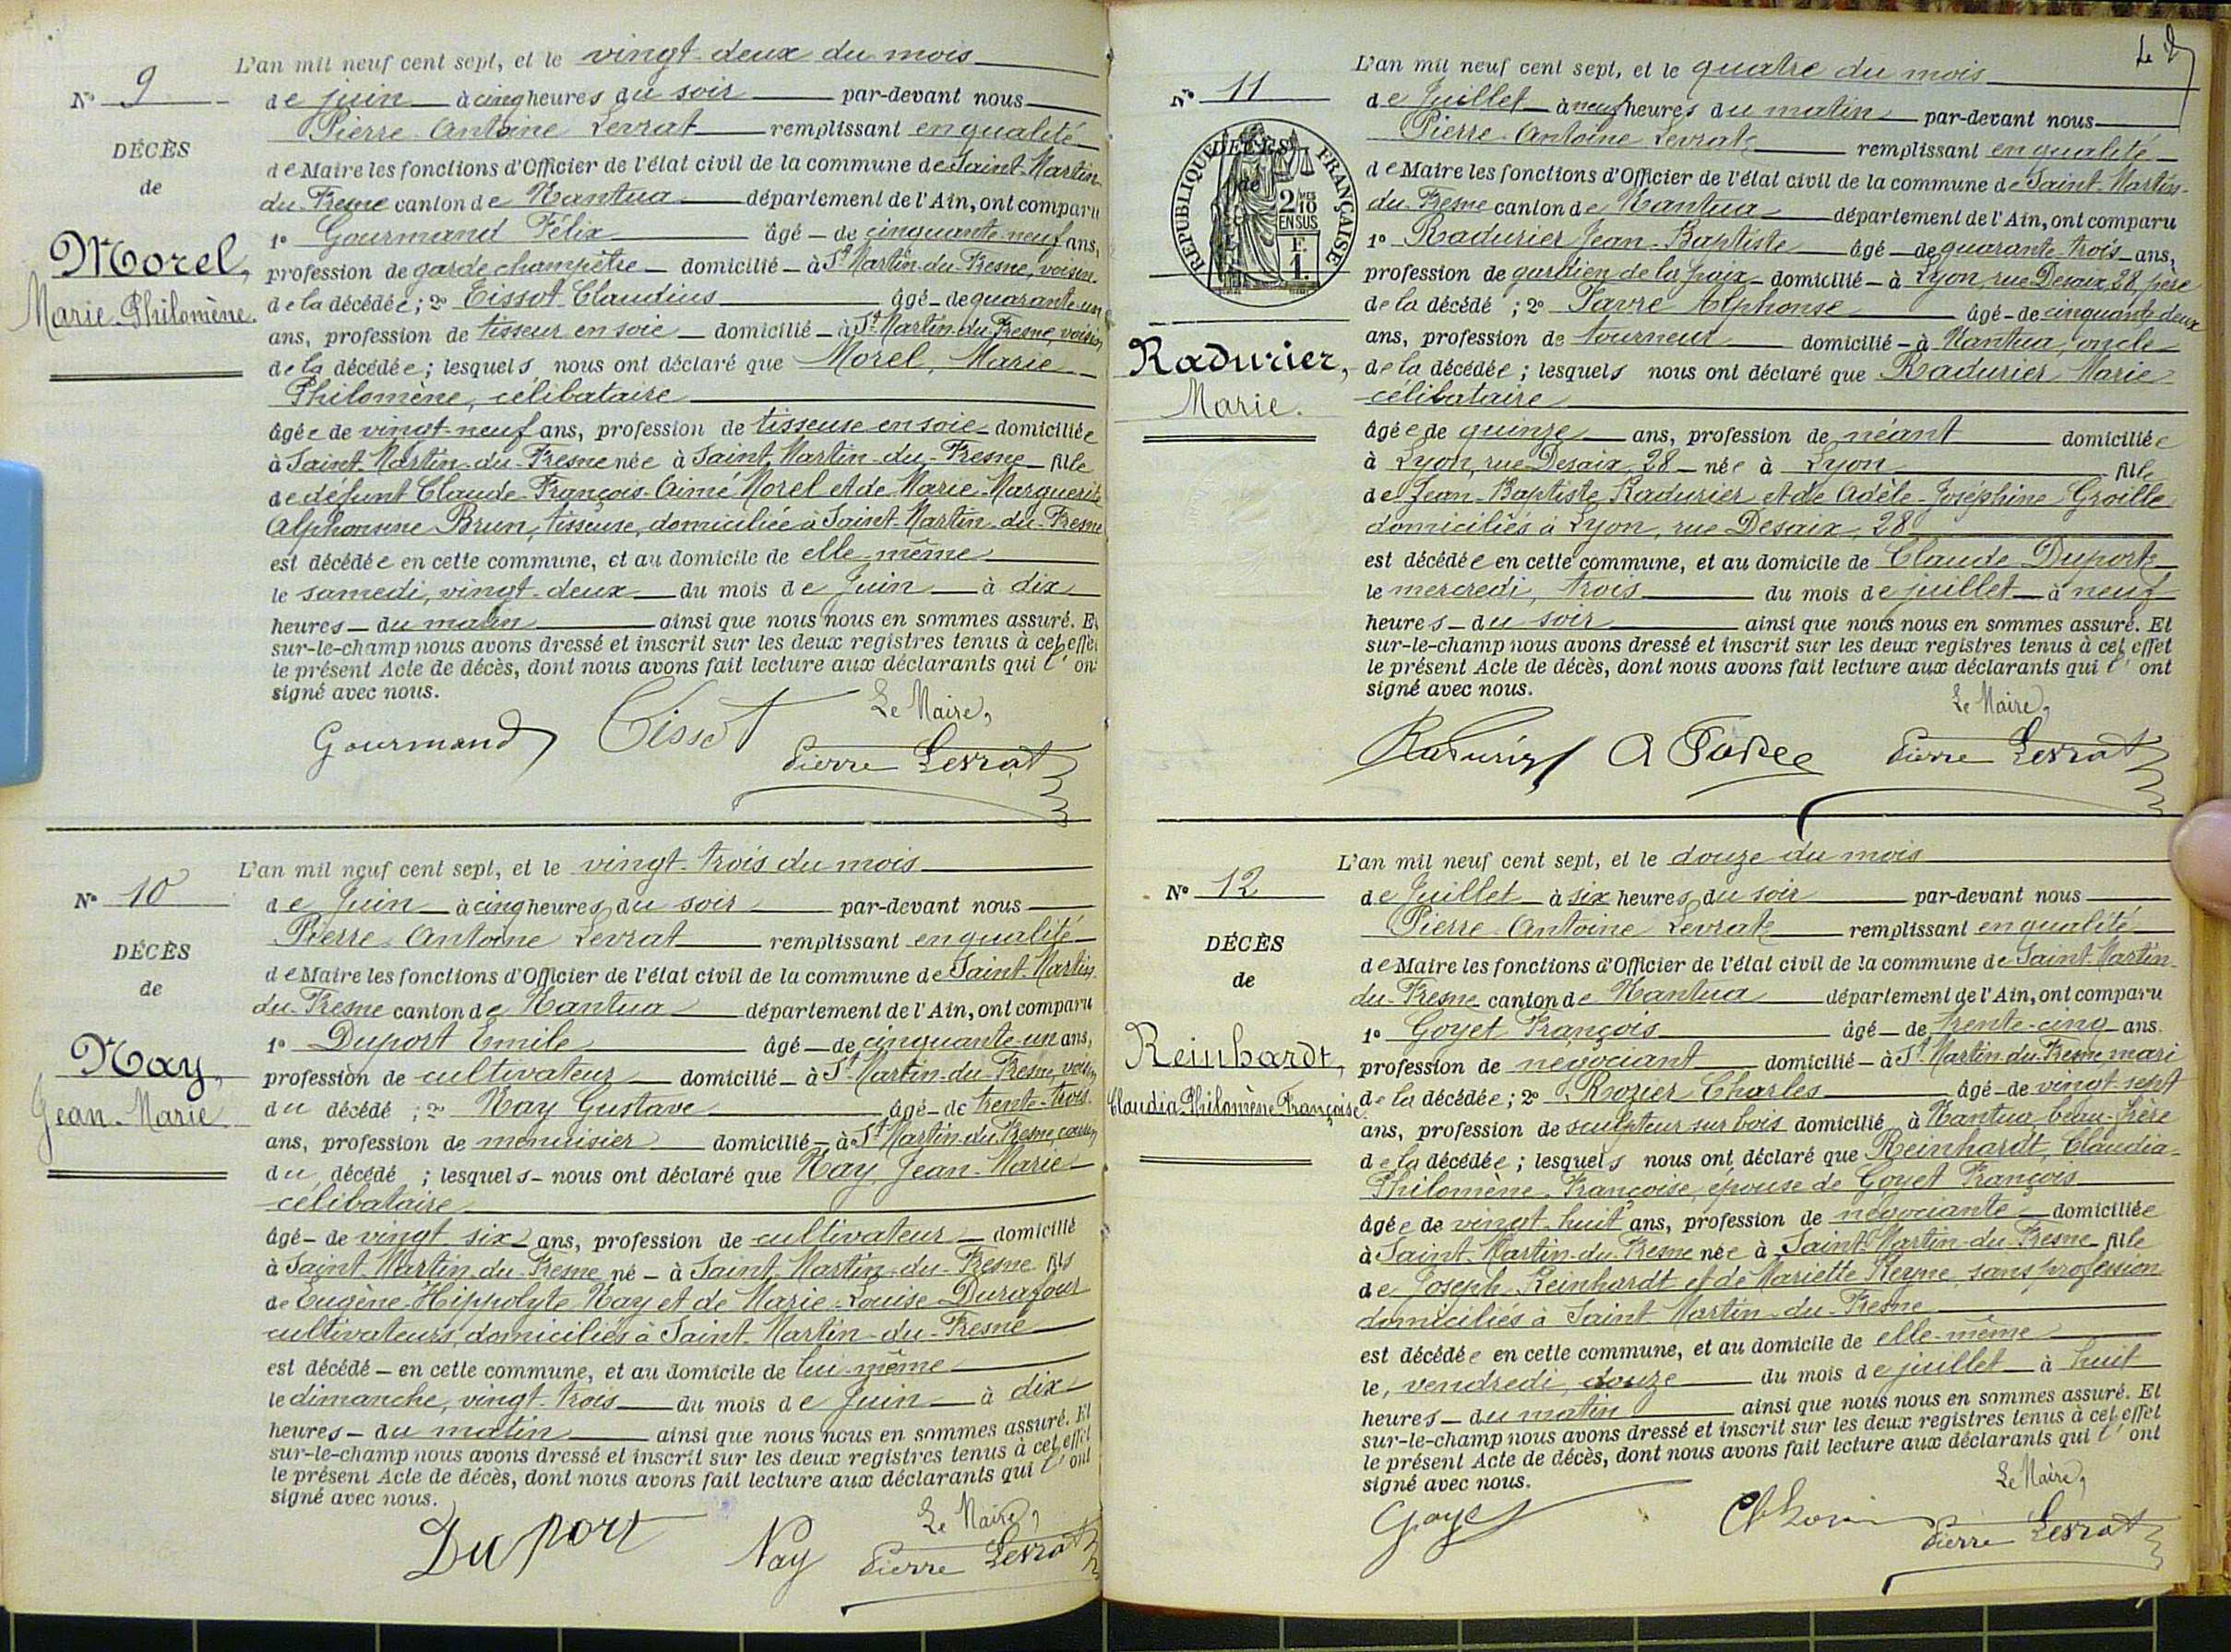 N° 9
DÉCÈS
de
Morel,
Marie-Philomène.
L'an mil neuf cent sept, et le vingt-deux du mois
de juin à cinq heures du soir par-devant nous
Pierre-Antoine Levrat remplissant en qualité
de Maire les fonctions d'Officier de l'état civil de la commune de Saint-Martin-
du-Fresne canton de Nantua département de l'Ain, ont comparu
1° Gourmand Félix âgé de cinquante-neuf ans,
profession de garde champêtre domicilié à St Martin-du-Fresne, voisin
de la décédée ; 2° Tissot Claudius âgé de quarante-un
ans, profession de tisseur en soie domicilié à St Martin-du-Fresne, voisin
de la décédée ; lesquels nous ont déclaré que Morel, Marie
Philomène, célibataire
âgée de vingt-neuf ans, profession de tisseuse en soie domiciliée
à Saint-Martin-du-Fresne née à Saint-Martin-du-Fresne fille
de défunt Claude-François-Aimé Morel et de Marie-Marguerite
Alphonsine Brun, tisseuse, domiciliée à Saint-Martin-du-Fresne
est décédée en cette commune, et au domicile de elle-même
le samedi, vingt-deux du mois de Juin à dix
heures du matin ainsi que nous nous en sommes assuré. Et
sur-le-champ nous avons dressé et inscrit sur les deux registres tenus à cet effet
le présent Acte de décès, dont nous avons fait lecture aux déclarants qui l'ont
signé avec nous.
Le Maire,
Gourmand Tissot Pierre Levrat
N° 10
DÉCÈS
de
Nay,
Jean-Marie
L'an mil neuf cent sept, et le vingt-trois du mois
de Juin à cinq heures du soir par-devant nous
Pierre-Antoine Levrat remplissant en qualité
de Maire les fonctions d'Officier de l'état civil de la commune de Saint-Martin-
du-Fresne canton de Nantua département de l'Ain, ont comparu
1° Duport Emile âgé de cinquante-un ans,
profession de cultivateur domicilié à St-Martin-du-Fresne, voisin
du décédé ; 2° Nay Gustave âgé de trente-trois
ans, profession de menuisier domicilié à St Martin-du-Fresne, cousin
du décédé ; lesquels nous ont déclaré que Nay, Jean-Marie
célibataire
âgé de vingt-six ans, profession de cultivateur domicilié
à Saint-Martin-du-Fresne né à Saint-Martin-du-Fresne fils
de Eugène-Hippolyte Nay et de Marie-Louise Durafour
cultivateurs, domiciliés à Saint-Martin-du-Fresne
est décédé en cette commune, et au domicile de lui-même
le dimanche, vingt-trois du mois de Juin à dix
heures du matin ainsi que nous nous en sommes assuré. Et
sur-le-champ nous avons dressé et inscrit sur les deux registres tenus à cet effet
le présent Acte de décès, dont nous avons fait lecture aux déclarants qui l'ont
signé avec nous.
Le Maire,
Duport Nay Pierre Levrat
N° 11
DÉCÈS
de
RÉPUBLIQUE FRANÇAISE
2/10 MES
EN SUS
F.
1.
Radurier,
Marie.
L'an mil neuf cent sept, et le quatre du mois
de Juillet à neuf heures du matin par-devant nous
Pierre-Antoine Levrat remplissant en qualité
de Maire les fonctions d'Officier de l'état civil de la commune de Saint-Martin-
du-Fresne canton de Nantua département de l'Ain, ont comparu
1° Radurier Jean-Baptiste âgé de quarante-trois ans,
profession de gardien de la paix domicilié à Lyon, rue Desaix, 28, père
de la décédé ; 2° Favre Alphonse âgé de cinquante-deux
ans, profession de tourneur domicilié à Nantua, oncle
de la décédée ; lesquels nous ont déclaré que Radurier Marie
célibataire
âgée de quinze ans, profession de néant domiciliée
à Lyon, rue Desaix, 28 née à Lyon fille
de Jean-Baptiste Radurier et de Adèle-Joséphine Groille
domiciliés à Lyon, rue Desaix, 28
est décédée en cette commune, et au domicile de Claude Duport
le mercredi, trois du mois de juillet à neuf
heures du soir ainsi que nous nous en sommes assuré. Et
sur-le-champ nous avons dressé et inscrit sur les deux registres tenus à cet effet
le présent Acte de décès, dont nous avons fait lecture aux déclarants qui l'ont
signé avec nous.
Le Maire,
Radurier A Favre Pierre Levrat
N° 12
DÉCÈS
de
Reinhardt,
Claudia-Philomène-Françoise.
L'an mil neuf cent sept, et le douze du mois
de Juillet à six heures du soir par-devant nous
Pierre-Antoine Levrat remplissant en qualité
de Maire les fonctions d'Officier de l'état civil de la commune de Saint-Martin-
du-Fresne canton de Nantua département de l'Ain, ont comparu
1° Goyet François âgé de trente-cinq ans.
profession de négociant domicilié à St Martin-du-Fresne mari
de la décédée ; 2° Rozier Charles âgé de vingt-sept
ans, profession de sculpteur sur bois domicilié à Nantua, beau-frère
de la décédée ; lesquels nous ont déclaré que Reinhardt, Claudia-
Philomène-Françoise, épouse de Goyet François
âgée de vingt-huit ans, profession de négociante domiciliée
à Saint-Martin-du-Fresne née à Saint-Martin-du-Fresne fille
de Joseph Reinhardt et de Mariette sans profession
domiciliés à Saint-Martin-du-Fresne
est décédée en cette commune, et au domicile de elle-même
le, vendredi, douze du mois de juillet à huit
heures du matin ainsi que nous nous en sommes assuré. Et
sur-le-champ nous avons dressé et inscrit sur les deux registres tenus à cet effet
le présent Acte de décès, dont nous avons fait lecture aux déclarants qui l'ont
signé avec nous.
Le Maire,
Goyet Pierre Levrat